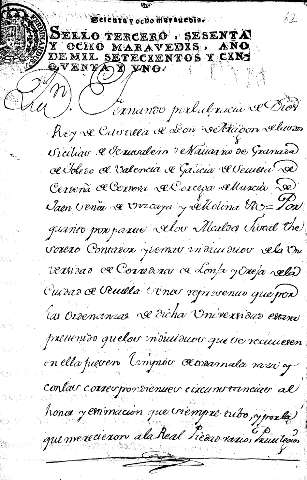 Sesenta y ocho maravedis.
62
SELLO TERCERO, SESENTA
Y OCHO MARAVEDIS, AÑO
DE MIL SETECIENTOS Y CIN-
QUENTA Y UNO.
Dn. Fernando por la Gracia de Dios
Rey de Castilla de Leon de Aragon de las dos
Sicilias de Jerusalem de Navarra de Granada
de Toledo de Valencia de Galicia de Sevilla de
Cerdeña de Cordova de Corcega de Murcia de
Jaen Señor de Vizcaya y de Molina &c = Por
quanto por parte de los Alcaldes Fiscal The
sorero Contador y demas individuos de la Uni
versidad de Corredores de Lonja y Oreja de la
Ciudad de Sevilla se nos represento que por
las Ordenanzas de dicha Universidad estava
prevenido que los individuos que se reciviesen
en ella fuesen limpios de toda mala raza y
con las correspondientes circunstancias al
honor y estimacion que siempre tubo, y por la
que merecieron a la Real Piedad varios Privilegios